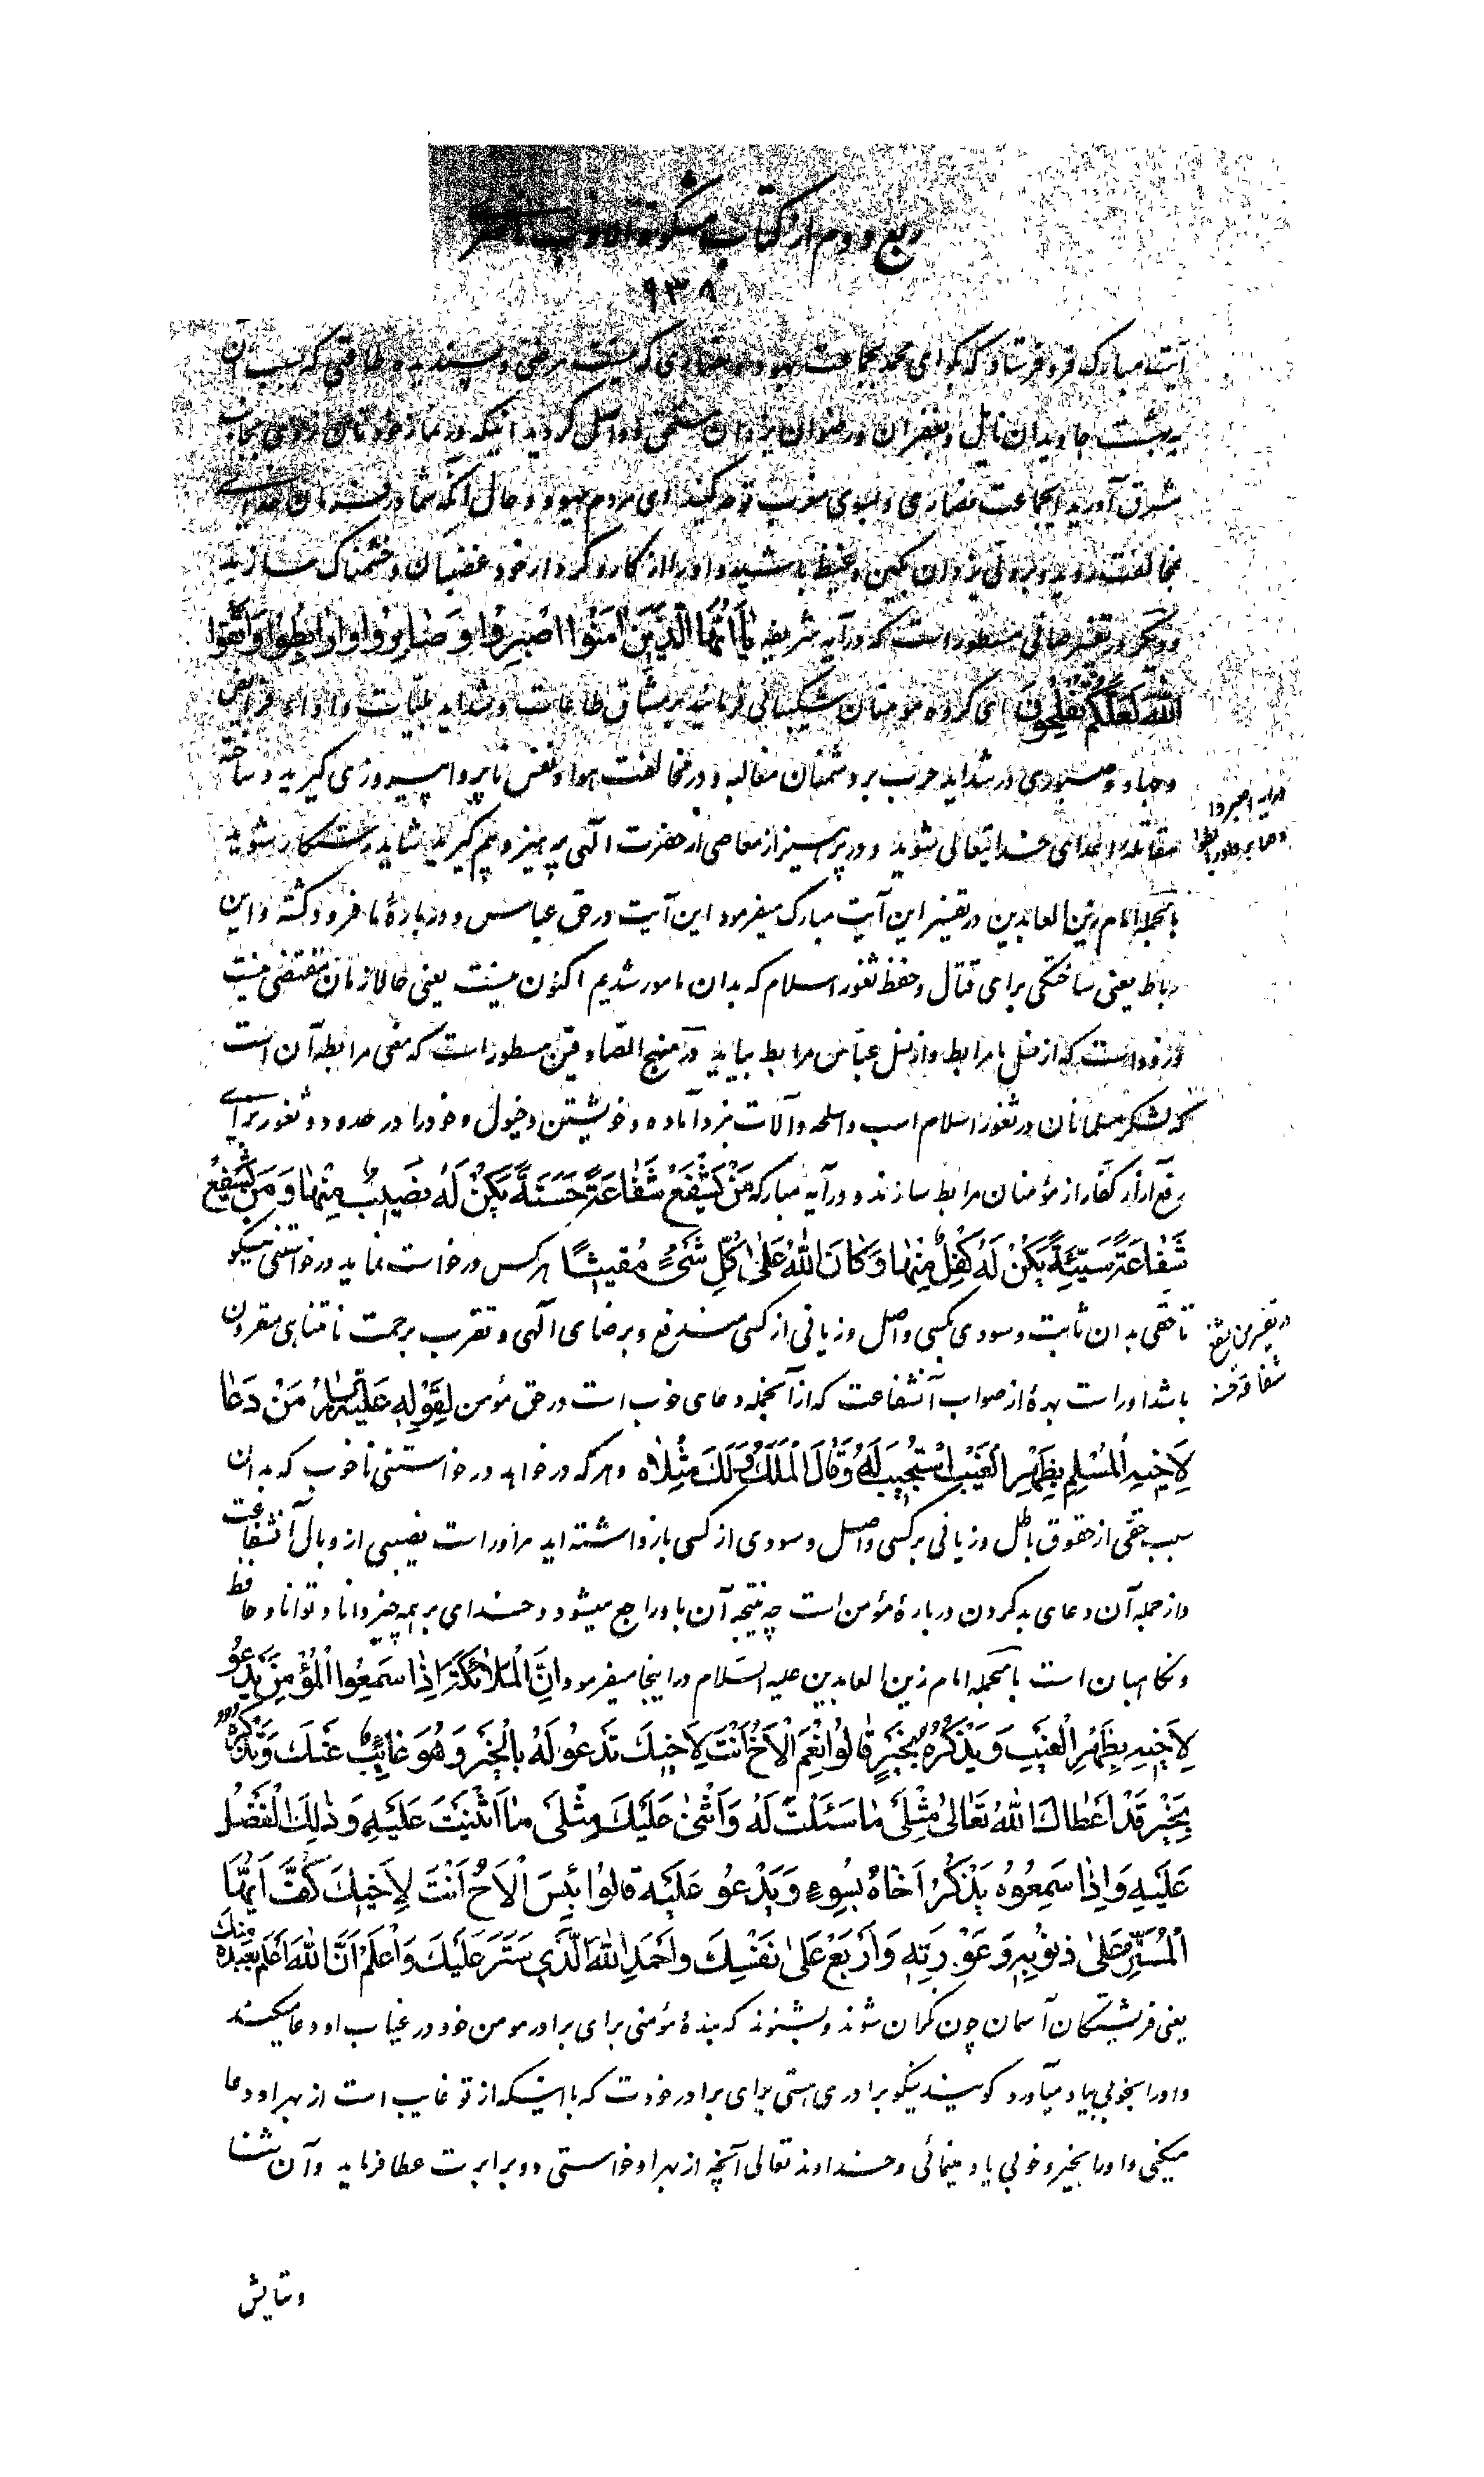 ربع دوم از کتاب مشکوة الادب ناصری
۹۳۸
آیتۀ مبارک فرو فرستاد که بگو ای محمد بجماعت یهود و نصاری که نیست مرضی و پسندیده و طاقتی که بسبب آن
به بهشت جاویدان نائل و بغفران و رضوان یزدان مستحق و واصل گردید اینکه در نماز خودتان روی بجانب
مشرق آورید ایجماعت نصاری و بسوی مغرب توجه کنید ای مردم یهود و حال آنکه شما در فرمان خدای
مخالفت ورزید و بر ولی یزدان بکین و غیظ باشید و او را از کار و کردار خود غضبان و خشمناک سازید
و دیگر در تفسیر صافی مسطور است که در آیه شریفه یٰا اَیُّهَا الَّذینَ اٰمَنُوا اصْبِرُوا وَ صٰابِرُوا وَ رٰابِطُوا وَ اتَّقُوا
اللّٰهَ لَعَلَّکُمْ تُفْلِحُونَ ای گروه مؤمنان شکیبائی فرمائید بر مشاق طاعات و شداید بلیّات و اداء فرائض
و جهاد و صبوری در شداید حرب بر دشمنان مغالبه و در مخالفت هوا و نفس ناپروا پیروزی گیرید و ساخته
مقاتله اعدای خدایتعالی شوید و در پرهیز از معاصی از حضرت الٓهی پرهیز و بیم گیرید شاید رستگار شوید
لدایه اصبروا
و صابروا و رابطوا
بالجمله امام زین العابدین در تفسیر این آیت مبارک میفرمود این آیت در حق عباس و در بارۀ ما فرود گشته و این
رباط یعنی ساختگی برای قتال و حفظ ثغور اسلام که بدان مامور شدیم اکنون نیست یعنی حالا زمان مقتضی نیست
و زود است که از نسل ما مرابط و از نسل عبّاس مرابط بیاید و در منهج الصّادقین مسطور است که معنی مرابطه آن است
که لشکر مسلمانان در ثغور اسلام اسب و اسلحه و آلات نبرد آماده و خویشتن و خیول و خود را در حدود و ثغور برای
رفع آزار کفّار از مؤمنان مرابط سازند و در آیه مبارکه مَنْ یَشْفَعْ شَفٰاعَةً حَسَنَةً یَکُنْ لَهُ نَصیبٌ مِنْهٰا وَ مَنْ یَشْفَعْ
شَفٰاعَةً سَیِّئَةً یَکُنْ لَهُ کِفْلٌ مِنْهٰا وَ کٰانَ اللّٰهُ عَلیٰ کُلِّ شَیْءٍ مُقیتًا هر کس درخواست نماید درخواستنی نیکو
تا حقّی بدان ثابت و سودی بکسی واصل و زیانی از کسی مندفع و برضای الٓهی و تقرب برحمت نامتناهی مقرون
در تفسیر من یشفع
شفاعة حسنة
باشد او راست بهرۀ از صواب آنشفاعت که از آنجمله دعای خوب است در حق مؤمن لِقَوْلِهِ عَلَیْهِ السَّلٰامُ مَنْ دَعٰا
لِاَخیهِ الْمُسْلِمِ بِظَهْرِ الْغَیْبِ اسْتُجیبَ لَهُ وَ قٰالَ الْمَلَکُ وَ لَکَ مِثْلٰاهُ و هر که درخواهد درخواستنی ناخوب که بدان
سبب حقّی از حقوق باطل و زیانی بر کسی واصل و سودی از کسی بازداشته اید مر او راست نصیبی از وبال آنشفاعت
و از جمله آن دعای بد کردن دربارۀ مؤمن است چه نتیجه آن باو راجع میشود و خدای بر همه چیز دانا و توانا و حافظ
و نگاهبان است بالجمله امام زین العابدین علیه السّلام در اینجا میفرمود اِنَّ الْمَلٰائِکَةَ اِذٰا سَمِعُوا الْمُؤْمِنَ یَدْعُو
لِاَخیهِ بِظَهْرِ الْغَیْبِ وَ یَذْکُرُهُ بِخَیْرٍ قٰالُوا نِعْمَ الْاَخُ اَنْتَ لِاَخیکَ تَدْعُو لَهُ بِالْخَیْرِ وَ هُوَ غٰائِبٌ عَنْکَ وَ تَذْکُرُهُ
بِخَیْرٍ قَدْ اَعْطٰاکَ اللّٰهُ تَعٰالیٰ مِثْلَیْ مٰا سَئَلْتَ لَهُ وَ اَثْنیٰ عَلَیْکَ مِثْلَیْ مٰا اَثْنَیْتَ عَلَیْهِ وَ لَکَ الْفَضْلُ
عَلَیْهِ وَ اِذٰا سَمِعُوهُ یَذْکُرُ اَخٰاهُ بِسُوءٍ وَ یَدْعُو عَلَیْهِ قٰالُوا بِئْسَ الْاَخُ اَنْتَ لِاَخیکَ کُفَّ اَیُّهَا
الْمُسَتَّرُ عَلیٰ ذُنُوبِهِ وَ عَوْرَتِهِ وَ ارْبَعْ عَلیٰ نَفْسِکَ وَ احْمَدِ اللّٰهَ الَّذی سَتَرَ عَلَیْکَ وَ اعْلَمْ اَنَّ اللّٰهَ اَعْلَمُ بِعَبْدِهِ مِنْکَ
یعنی فریشتگان آسمان چون نگران شوند و بشنوند که بندۀ مؤمنی برای برادر مومن خود در غیاب او دعا میکند
و او را بخوبی بیاد میآورد گویند نیکو برادری هستی برای برادر خودت که با اینکه از تو غایب است از بهر او دعا
میکنی و او را بخیر و خوبی یاد مینمائی و خداوند تعالی آنچه از بهر او خواستی دو برابرت عطا فرماید و آن ثنا
و ستایش